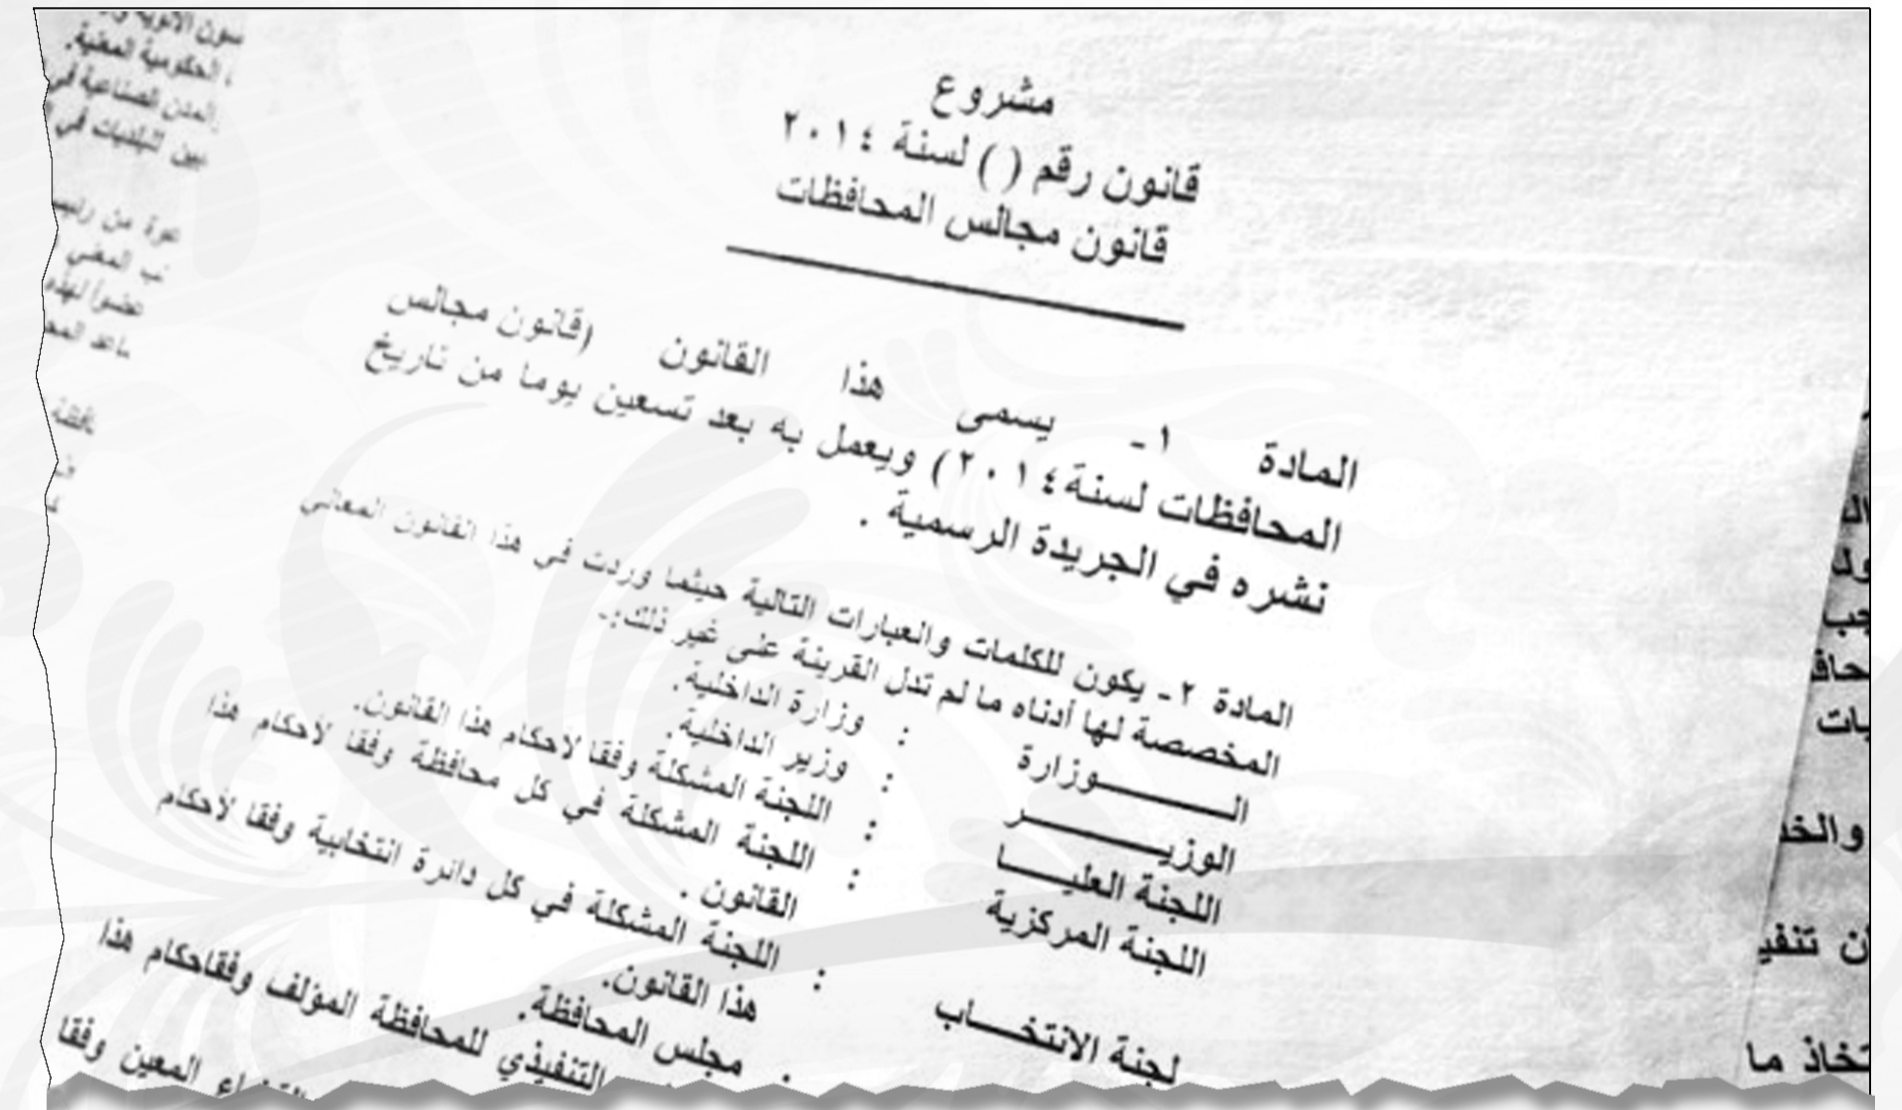 مشروع
قانون رقم ( ) لسنة ٢٠١٤
قانون مجالس المحافظات
المادة ١- يسمى هذا القانون (قانون مجالس
المحافظات لسنة ٢٠١٤) ويعمل به بعد تسعين يوما من تاريخ
نشره في الجريدة الرسمية .
المادة ٢- يكون للكلمات والعبارات التالية حيثما وردت في هذا القانون المعاني
المخصصة لها أدناه ما لم تدل القرينة على غير ذلك:-
الـــــــوزارة : وزارة الداخلية.
الوزيـــــــر : وزير الداخلية.
اللجنة العليـــــا : اللجنة المشكلة وفقا لاحكام هذا القانون.
اللجنة المركزية : اللجنة المشكلة في كل محافظة وفقا لاحكام هذا
القانون .
لجنة الانتخـــاب : اللجنة المشكلة في كل دائرة انتخابية وفقا لأحكام
هذا القانون.
: مجلس المحافظة.
التنفيذي للمحافظة المؤلف وفقاحكام هذا
المعين وفقا
الحكومية المعنية.
المدن الصناعية في
البلديات في
من
المعني
والخد
تنفي
ما